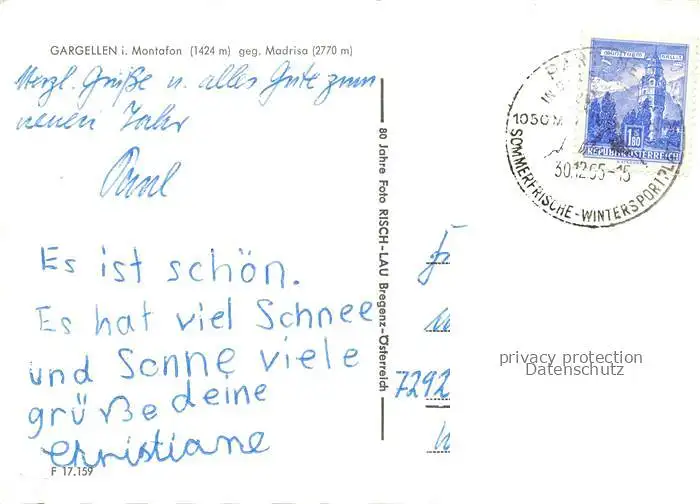 GARGELLEN i. Montafon (1424 m) geg. Madrisa (2770 m)
Herzl. Grüße u. alles Gute zum
neuen Jahr
Paul
Es ist schön.
Es hat viel Schnee
und Sonne viele
grüße deine
Christiane
F 17.159
80 Jahre Foto RISCH-LAU Bregenz-Österreich
1050 M
30.12.65-15
SOMMERFRISCHE-WINTERSPORTPL
1.80
REPUBLIK ÖSTERREICH
7292
privacy protection
Datenschutz